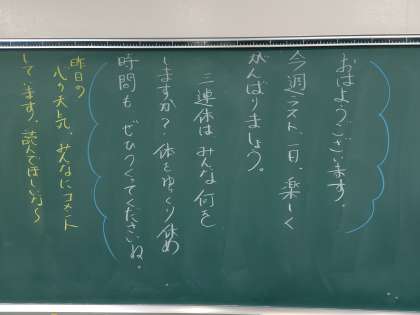 おはようございます。
今週ラスト一日、楽しく
がんばりましょう。
三連休はみんな何を
しますか？体をゆっくり休め
時間も ぜひつくってくださいね。
昨日の
心の天気、みんなにコメント
してます！読んでほしいな～